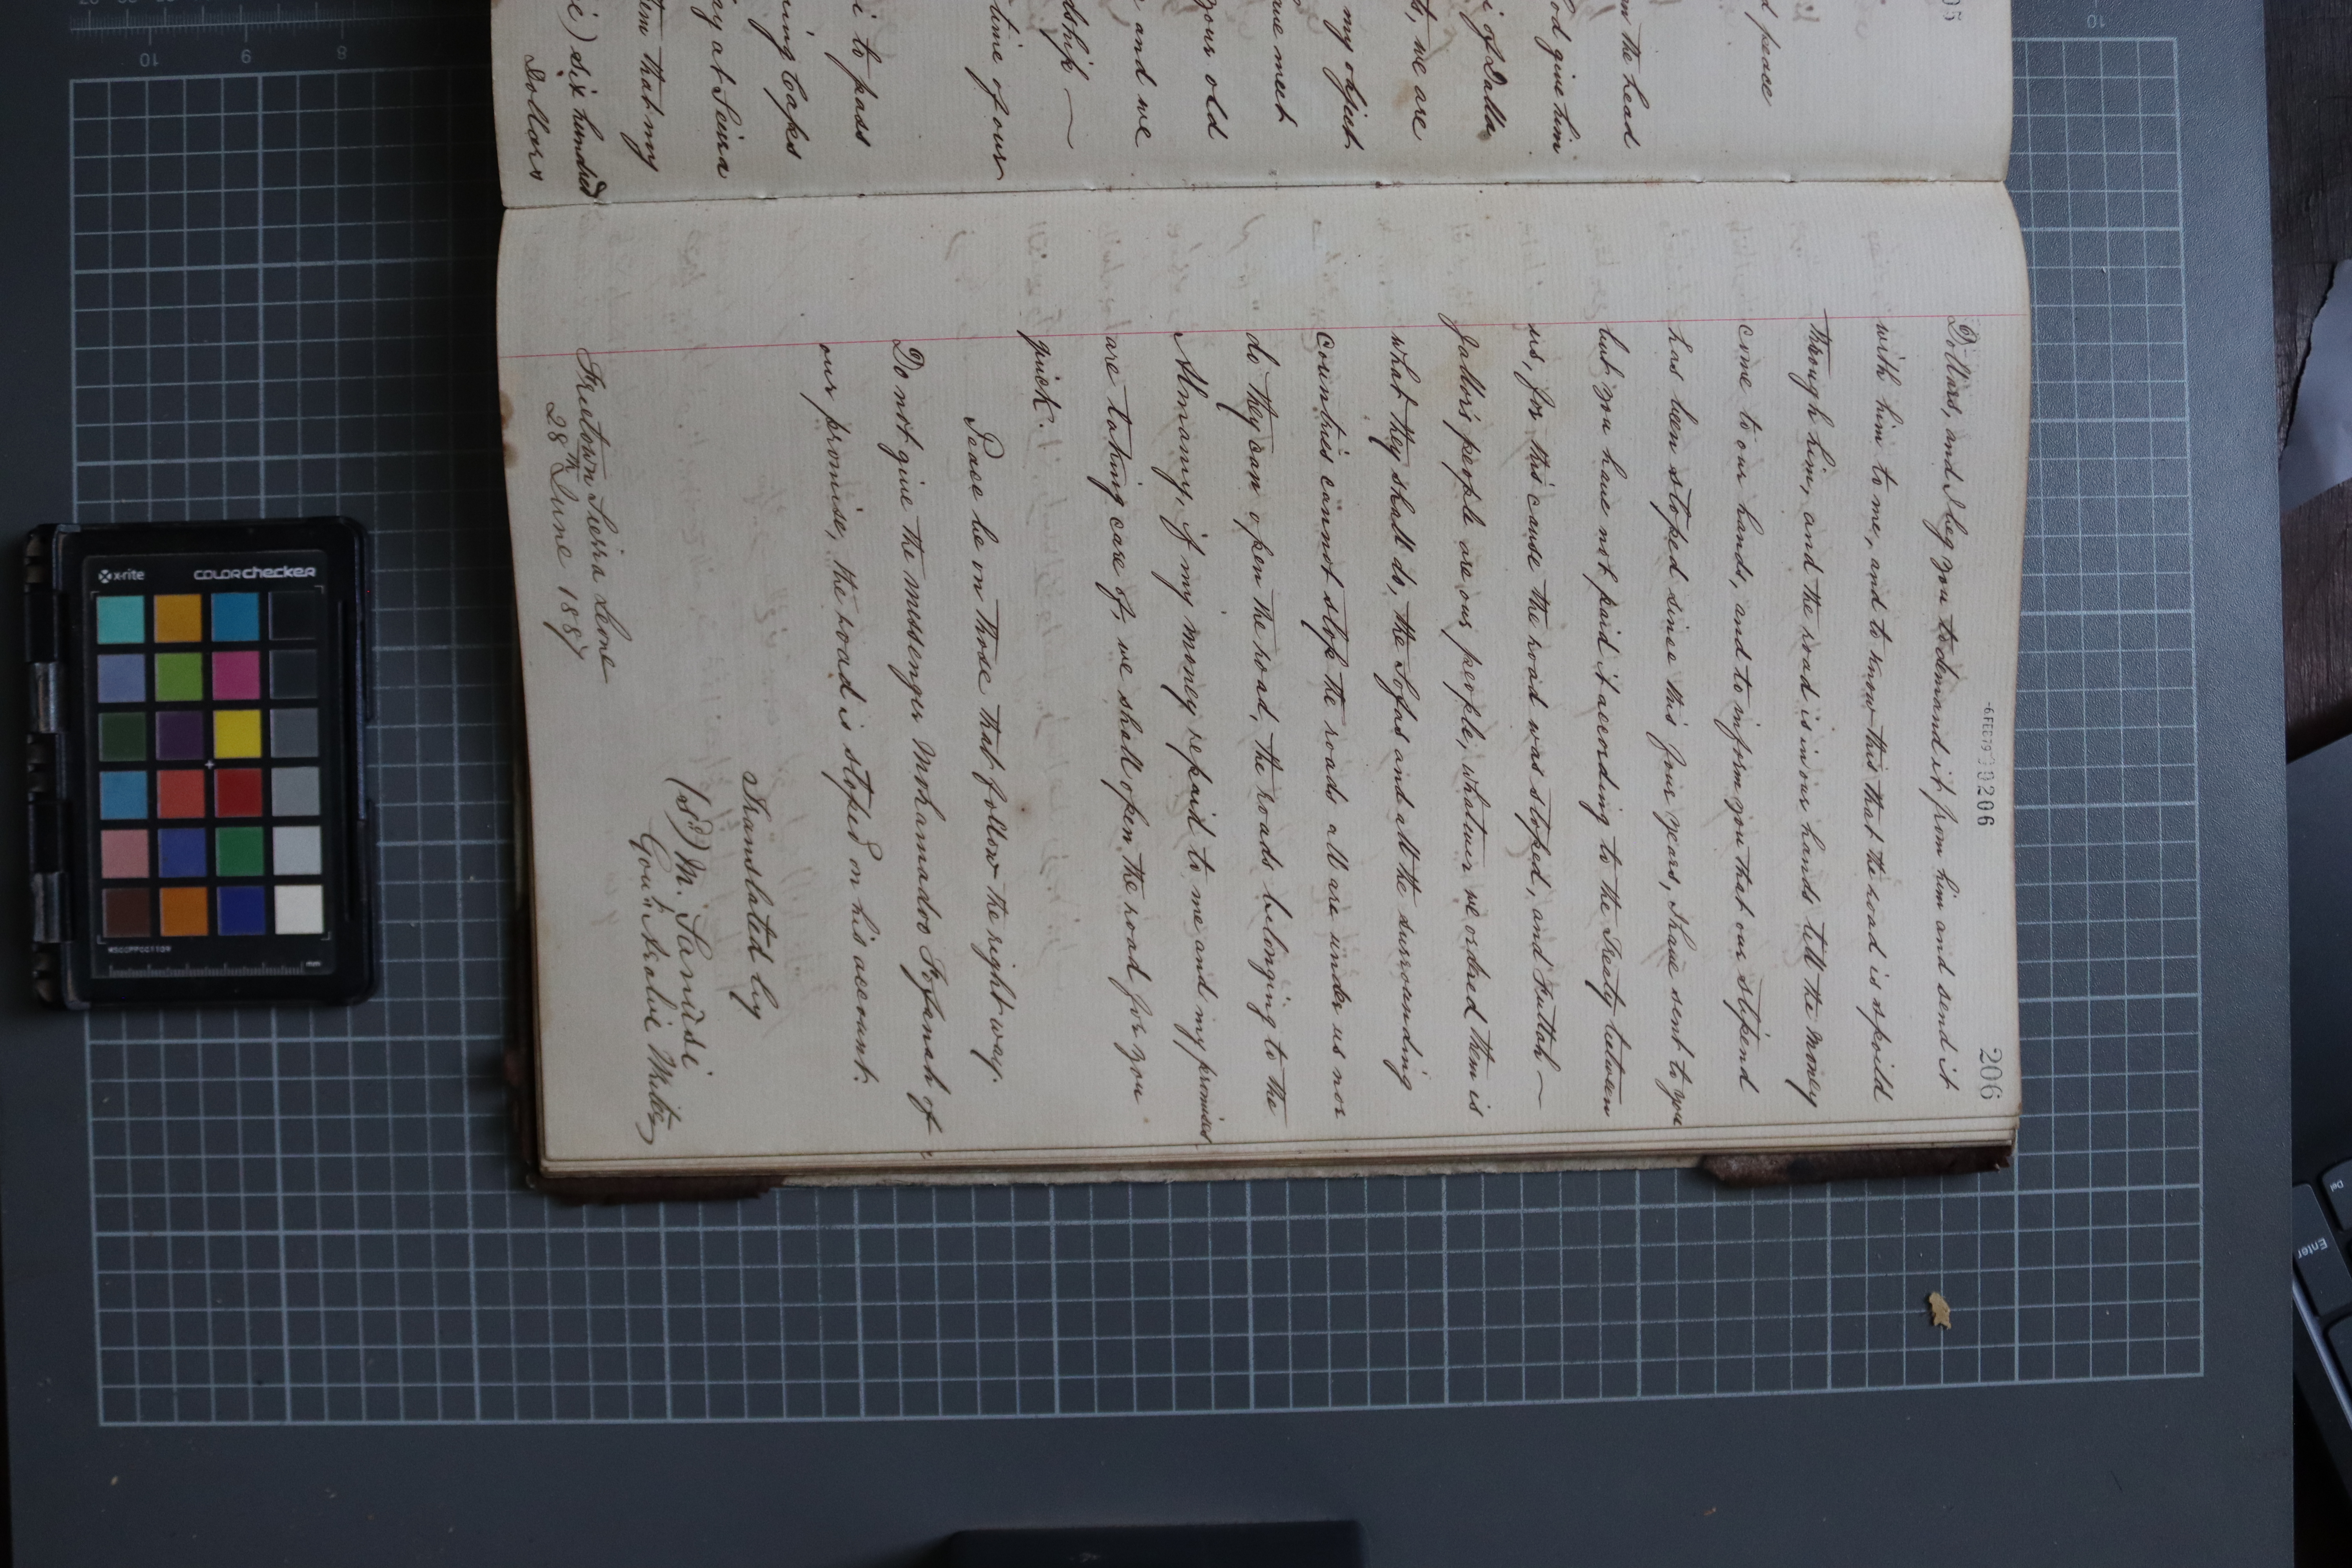 206
-6 FEB 79 0206
Dollars, and I beg you to demand it from him and send it
with him to me, and to know this that the road is spoild
through him, and the road is in our hands till the money
come to our hands, and to inform you that our stipend
has been stoped since this four years, I have sent to you
but you have not paid it according to the Treaty between
us, for this cause the road was stoped, and Futtah —
Jallo's people are our people, whatever we ordred them is
what they shall do, the Sofas and all the surrounding
countries cannot stop the roads all are under us nor
do they can open the road, the roads belonging to the
Almamy, if my money repaid to me and my promises
are taking care of, we shall open the road for you
quick.
Peace be on those that follow the right way.
Do not give the messenger Mohamadoo Fofanah of
our promise, the road is stoped on his account.
Translated by
(sd) M. Sanusi
Gov't Arabic Writer
Freetown Sierra Leone
28th June 1887
d peace
m the head
od give him
i of Dalla
t, we are
my object
ave meet
your old
and we
dship —
time of our
i to pass
ing Caps
ay at Seira
tem that my
e) six hundred
Dollars
x-rite
colorchecker
MSCCPPCC1109
mm
Enter
Del
10
9
8
10